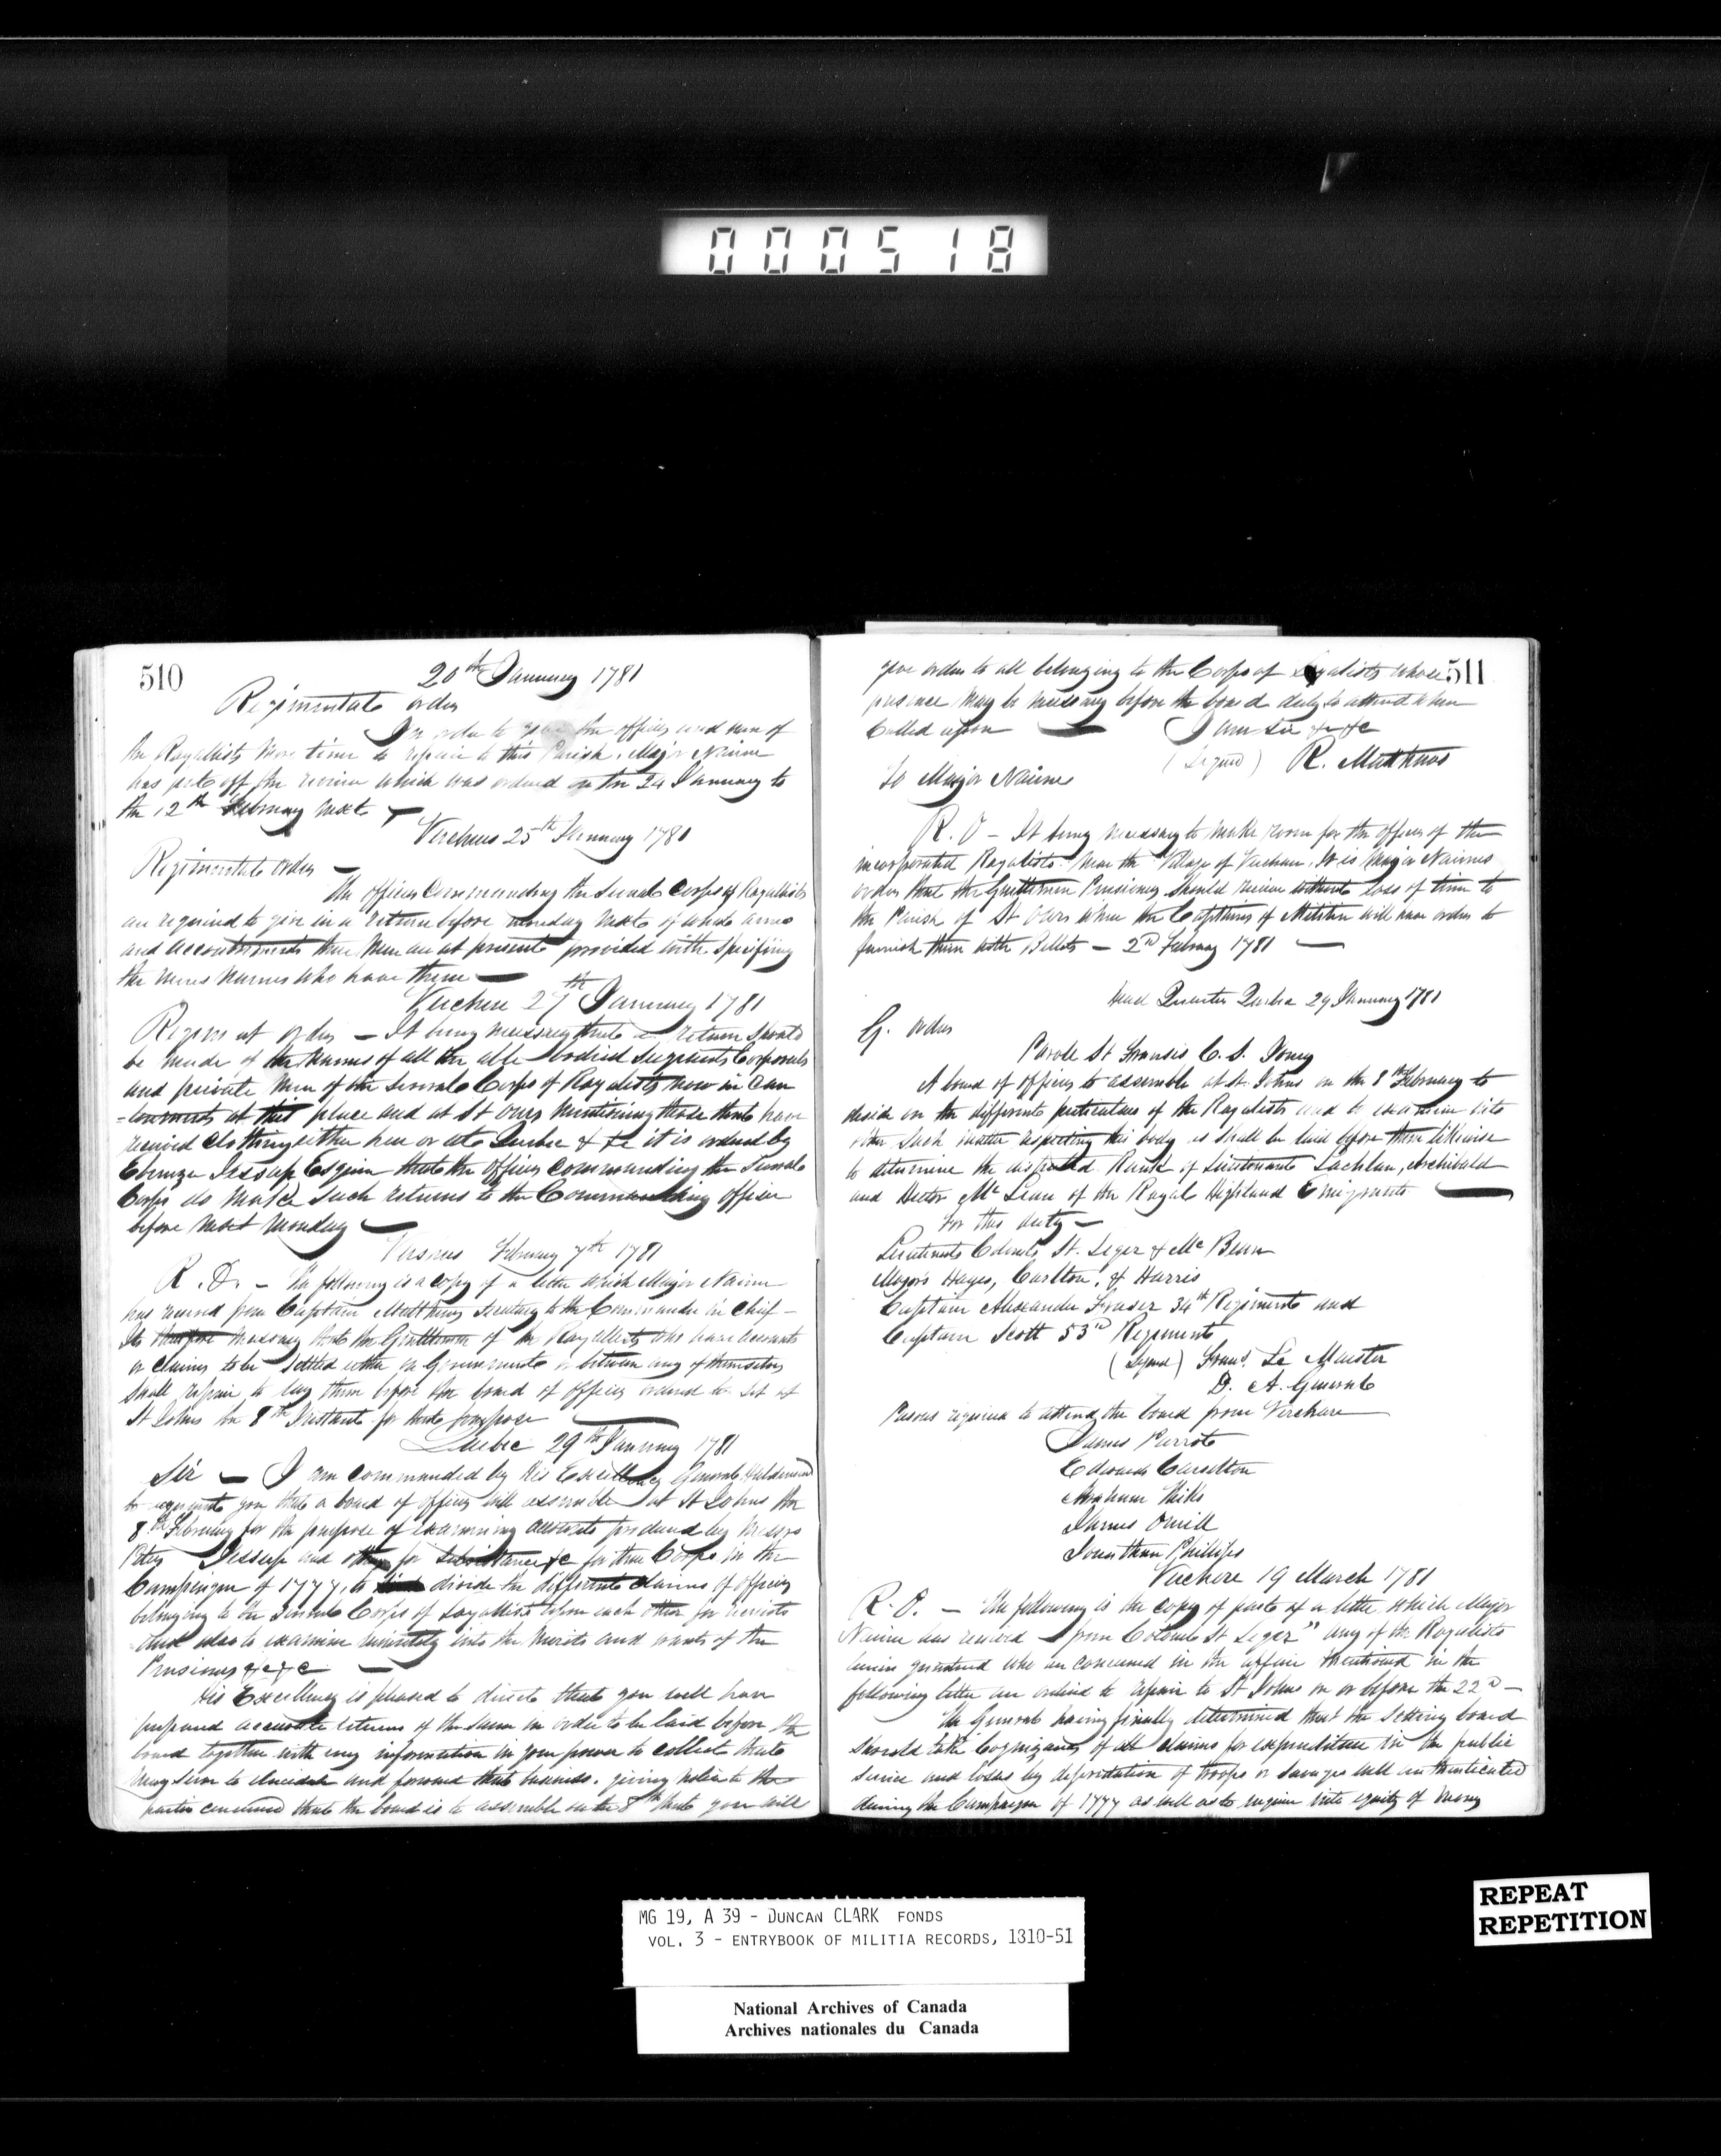 000518
510
20th January 1781
Regimental order
In order to give the officers and men of
the Royallists more time to repair to this Parish, Major Nairne
has put off the review which was ordered on the 24 January to
the 12th February next
Verchere 25th January 1781
Regimental order
The officers Commanding the several Corps of Royallists
are required to give in a return before monday next of what arms
and accoutrements their Men are at present provided with specifiing
the mens names who have them
Verchere 27th January 1781
Regiment order - It being necessary that a return should
be made of the names of all the able bodied Sergeants Corporals
and private Men of the several Corps of Royalists now in Can
-tonments at this place and at St Ours mentioning those that have
received clothing either here or at Quebec & it is ordered by
Ebenezer Jessup Esquire that the officers commanding the several
Corps do make such returns to the Commanding officer
before next Monday
February 7th 1781
R. O. - The following is a copy of a letter which Major Nairne
has received from Captain Matthews Secretary to the Commander in Chief -
Its necessary that the Gentlemen of the Royallists who have accounts
or claims to be settled either on Government or between any of themselves
shall repair to lay them before the board of officers ordered to sit at
St Johns the 8th Instant for that purpose
Quebec 29th January 1781
Sir - I am commanded by His Excellency General Haldimand
to you that a board of officers will assemble at St Johns the
8th February for the purpose of examining accounts produced by Messrs
Peters Jessup and others for subsistance &c for their Corps in the
Campaign of 1777, to divide the different claims of officers
belonging to the several Corps of Loyallists upon each other for recruits
and also to examine minutely into the merits and wants of the
Pensioners &c &c
His Excellency is pleased to direct that you will have
prepared accurate returns of the same in order to be laid before the
board together with any information in your power to collect that
may serve to elucidate and forward that business, giving notice to the
parties concerned that the board is to assemble on the 8th that you will
511
give orders to all belonging to the Corps of Loyalists whose
presence may be necessary before the board duly to attend when
Called upon I am Sir &c &c
(Signed) R. Matthews
To Major Nairne
R. O - It being necessary to make room for the officers of the
incorporated Royalists near the Village of Verchere, It is Major Nairnes
orders that the Gentlemen Pensioners should remove without loss of time to
the Parish of St Ours where the Captains of Militia will have orders to
furnish them with Billets - 2nd February 1781
Head Quarter Quebec 29 January 1781
G. orders
Parole St Fransis C. S.
A board of officers to assemble at St Johns on the 8th February to
deside on the different particulars of the Royalists and to examine into
other such matter respecting this body as shall be laid before them likewise
to determine the disputed Rank of Lieutenants Lachlan, Archibald
and Hector McLean of the Royal Highland Emigrants
For this duty -
Lieutenants Colonels St. Leger & Mc Bean
Majors Hayes, Carlton, & Harris
Captain Alexander Fraser 34th Regiment and
Captain Scott 53rd Regiment
(Signed) Frans. Le Maister
D. A. General
Persons required to attend the board from Verchere
James Parrot
Edward Carscilton
James Oneill
Jonathan Phillips
Verchere 19 March 1781
R. O. - The following is the copy of part of a letter which Major
Nairne has received from Colonel St Leger" any of the Royalists
who are concerned in the affair mentioned in the
following letter are ordered to repair to St Johns on or before the 22nd -
The General having finally determined that the setting board
should take Cognizance of all claims for expenditure in the public
service and losses by depredation of troops or Savages well authenticated
during the Campaign of 1777 as well as to inquire into equity of many
MG 19, A 39 - DUNCAN CLARK FONDS
VOL. 3 - ENTRYBOOK OF MILITIA RECORDS, 1810-51
National Archives of Canada
Archives nationales du Canada
REPEAT
REPETITION